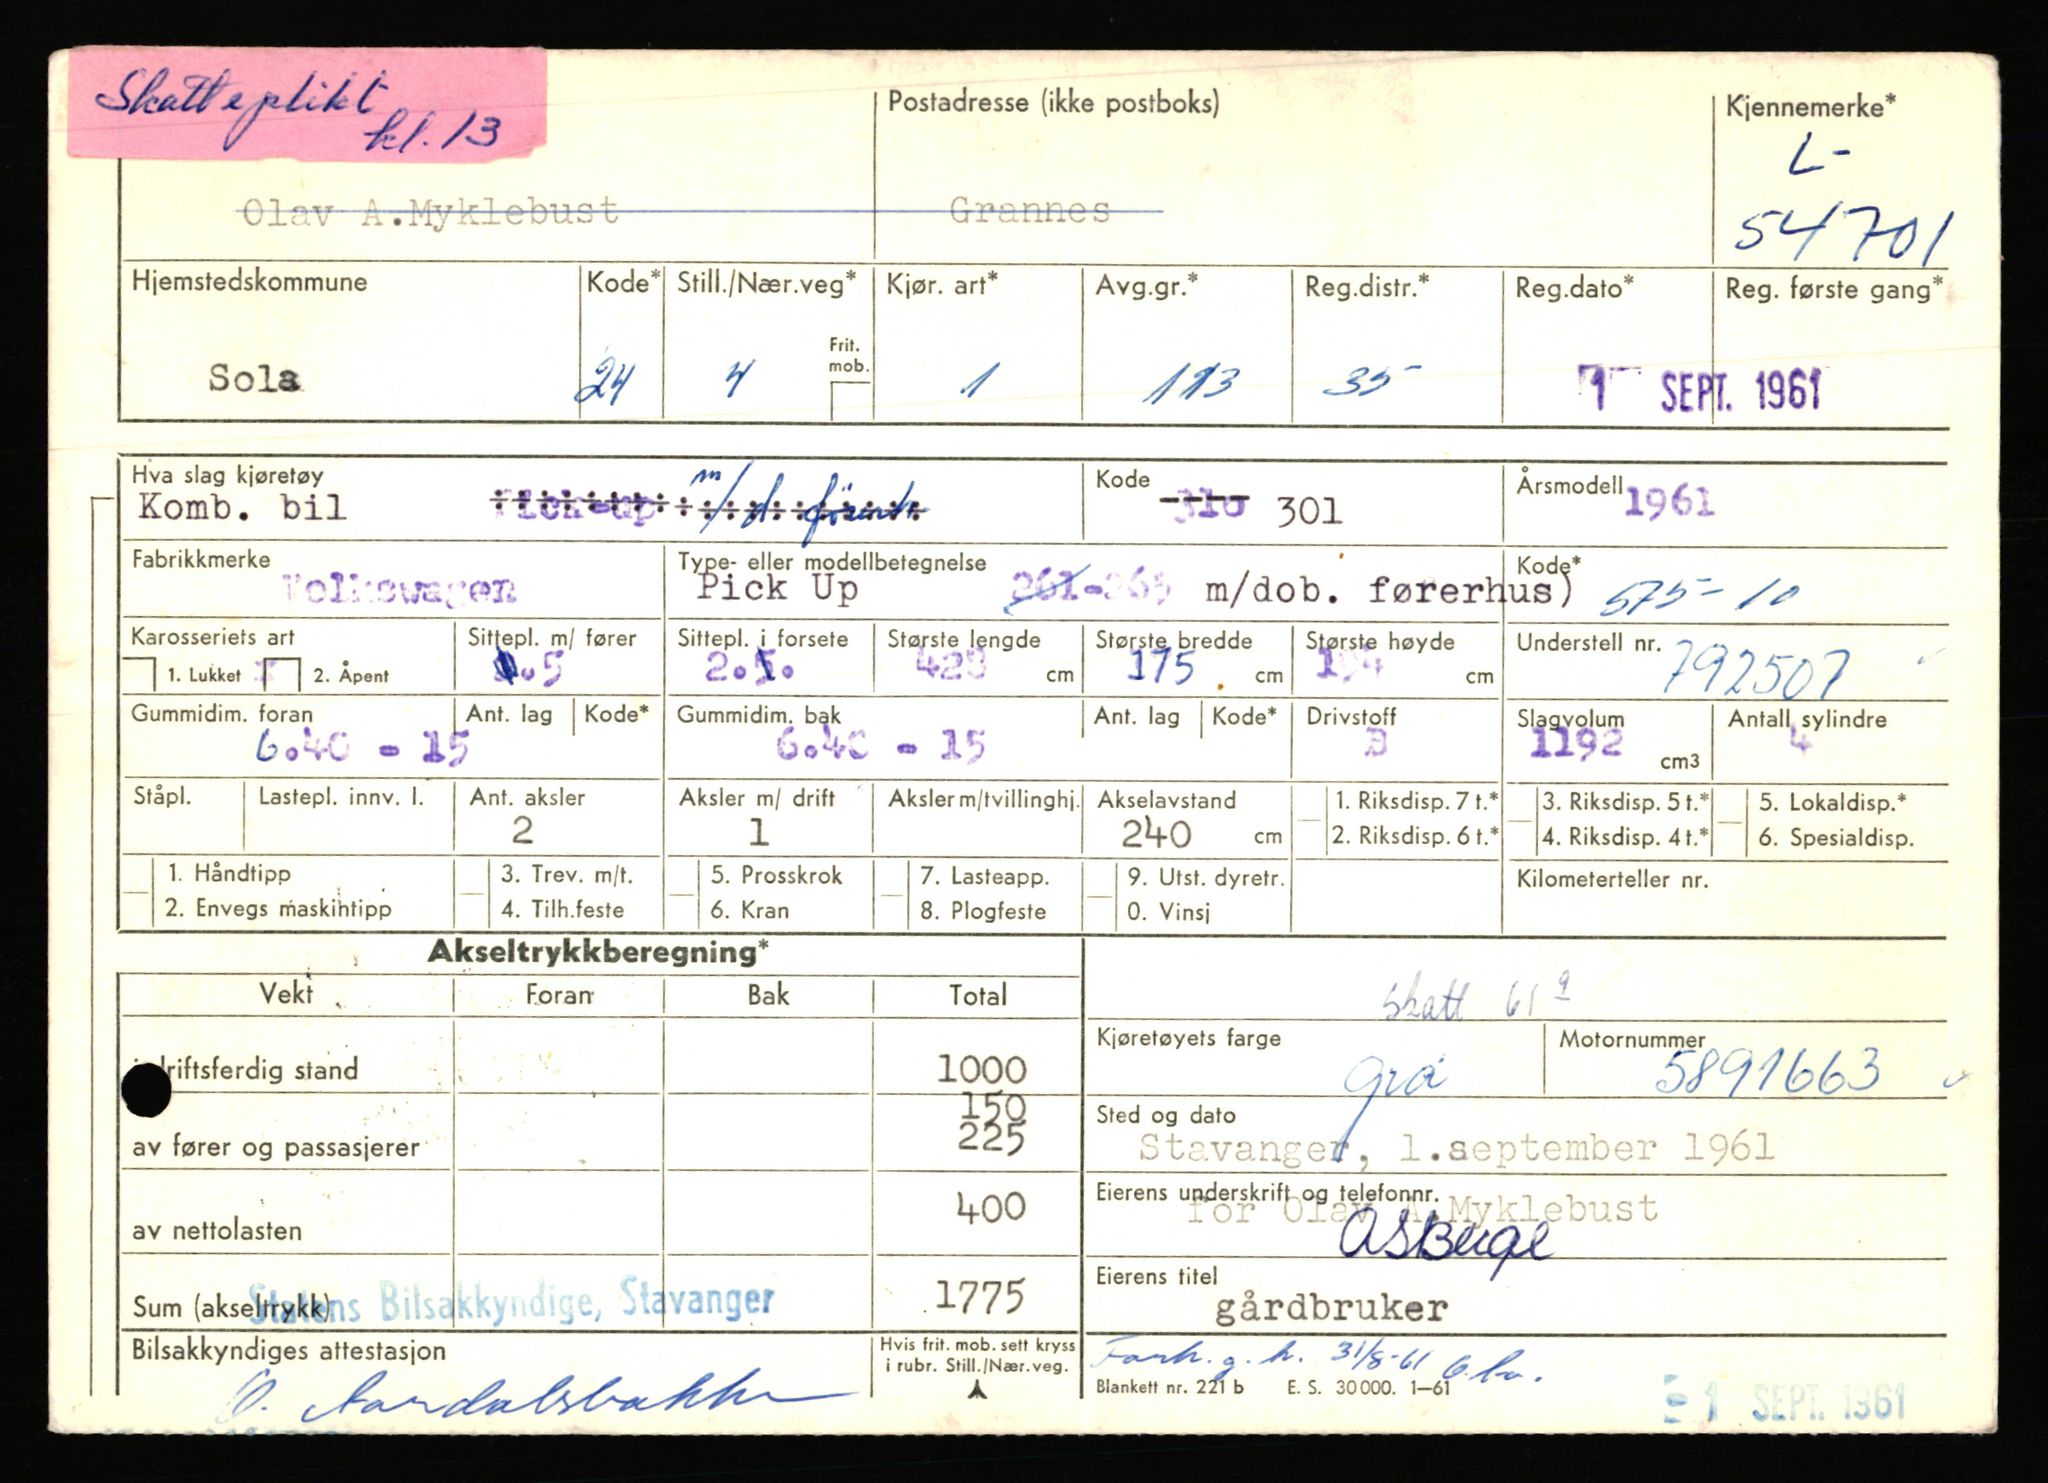 Skatteplikt
kl. 13
Postadresse (ikke postboks)
Kjennemerke*
L-
54701
Olav A.Myklebust
Grannes
Hjemstedskommune
Kode*
Still./Nær.veg*
Kjør. art*
Avg.gr.*
Reg.distr.*
Reg.dato*
Reg. første gang*
Sola
24
4
Frit.
mob.
1
113
35
1 SEPT. 1961
Hva slag kjøretøy
Komb. bil
Pick-up
m/d.
Kode
310 301
Årsmodell
1961
Fabrikkmerke
Volkswagen
Type- eller modellbetegnelse
Pick Up 261-265 m/dob. førerhus)
Kode*
575-10
Karosseriets art
1. Lukket
2. Åpent
Sittepl. m/ fører
.5
Sittepl. i forsete
2.
Største lengde
428 cm
Største bredde
175 cm
Største høyde
194 cm
Understell nr.
792507
Gummidim. foran
6.40 - 15
Ant. lag
Kode*
Gummidim. bak
6.40 - 15
Ant. lag
Kode*
Drivstoff
B
Slagvolum
1192 cm3
Antall sylindre
4
Ståpl.
Lastepl. innv. l.
Ant. aksler
2
Aksler m/ drift
1
Aksler m/tvillinghj.
Akselavstand
240 cm
1. Riksdisp. 7 t.*
2. Riksdisp. 6 t.*
3. Riksdisp. 5 t.*
4. Riksdisp. 4 t.*
5. Lokaldisp.*
6. Spesialdisp.
1. Håndtipp
2. Envegs maskintipp
3. Trev. m/t.
4. Tilh.feste
5. Prosskrok
6. Kran
7. Lasteapp.
8. Plogfeste
9. Utst. dyretr.
0. Vinsj
Kilometerteller nr.
Akseltrykkberegning*
Vekt
Foran
Bak
Total
Skatt 61
driftsferdig stand
1000
Kjøretøyets farge
Grå
Motornummer
5891663
150
av fører og passasjerer
225
Sted og dato
Stavanger, 1.september 1961
av nettolasten
400
Eierens underskrift og telefonnr.
for Olav A.Myklebust
Sum (akseltrykk)
1775
Statens Bilsakkyndige, Stavanger
Eierens titel
gårdbruker
Bilsakkyndiges attestasjon
Hvis frit. mob. sett kryss
i rubr. Still./Nær.veg.
Forh. g. h. 31/8-61
Blankett nr. 221 b E. S. 30 000. 1-61
1 SEPT. 1961